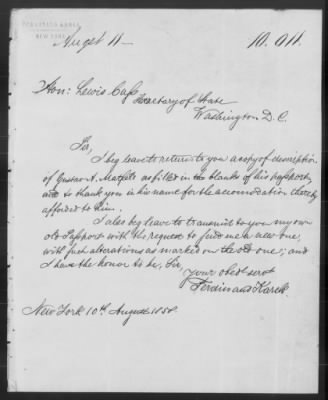 FERDINAND KARCK
NEW YORK
Augst 11 —
10. Att.
Hon: Lewis Cass
Secretary of State
Washington D.C.
Sir,
I beg leave to return to you a copy of description
of Gustav A. as filled in the blanks of his passport,
and to thank you in his name for the accomodation thereby
afforded to him.
I also beg leave to transmit to you my own
old Passport with the request to send me a new one,
with such alterations as marked on the old one; and
I have the honor to be, Sir,
your obedt servt
Ferdinand Karck.
New York 10th August 1858.